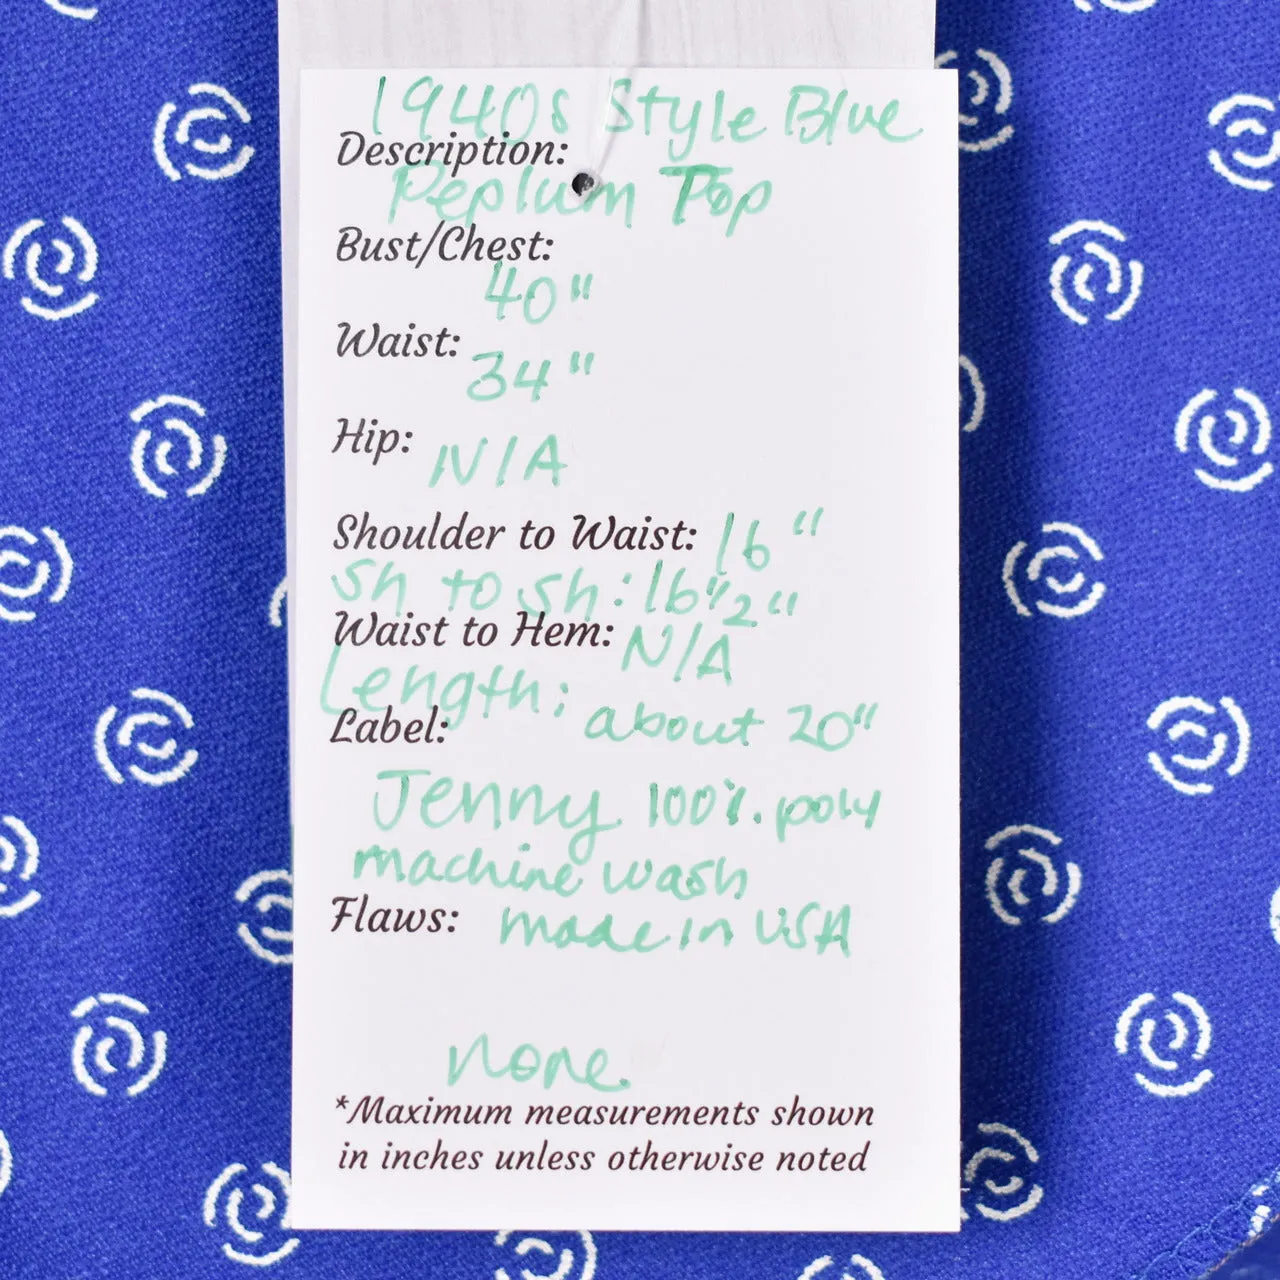 1940s Style Blue
Description:
Peplum Top
Bust/Chest:
40"
Waist:
34"
Hip: N/A
Shoulder to Waist: 16"
Sh to Sh: 16 1/2"
Waist to Hem: N/A
Length: about 20"
Label:
Jenny 100% poly
machine wash
Flaws: made in USA
none
*Maximum measurements shown
in inches unless otherwise noted